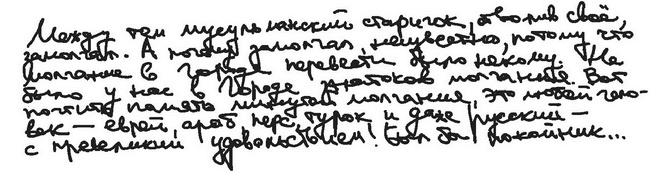 Между тем мусульманский старичок, отволив своё,
замолчал. А почему замолчал, неизвестно, потому что
молчание в Городе перевести было некому. Не
было у нас в Городе знатоков молчания. Вот
почтить память минутой молчания, это любой чело-
век — еврей, араб, перс, турок и даже русский —
с превеликим удовольствием! Был бы покойник...